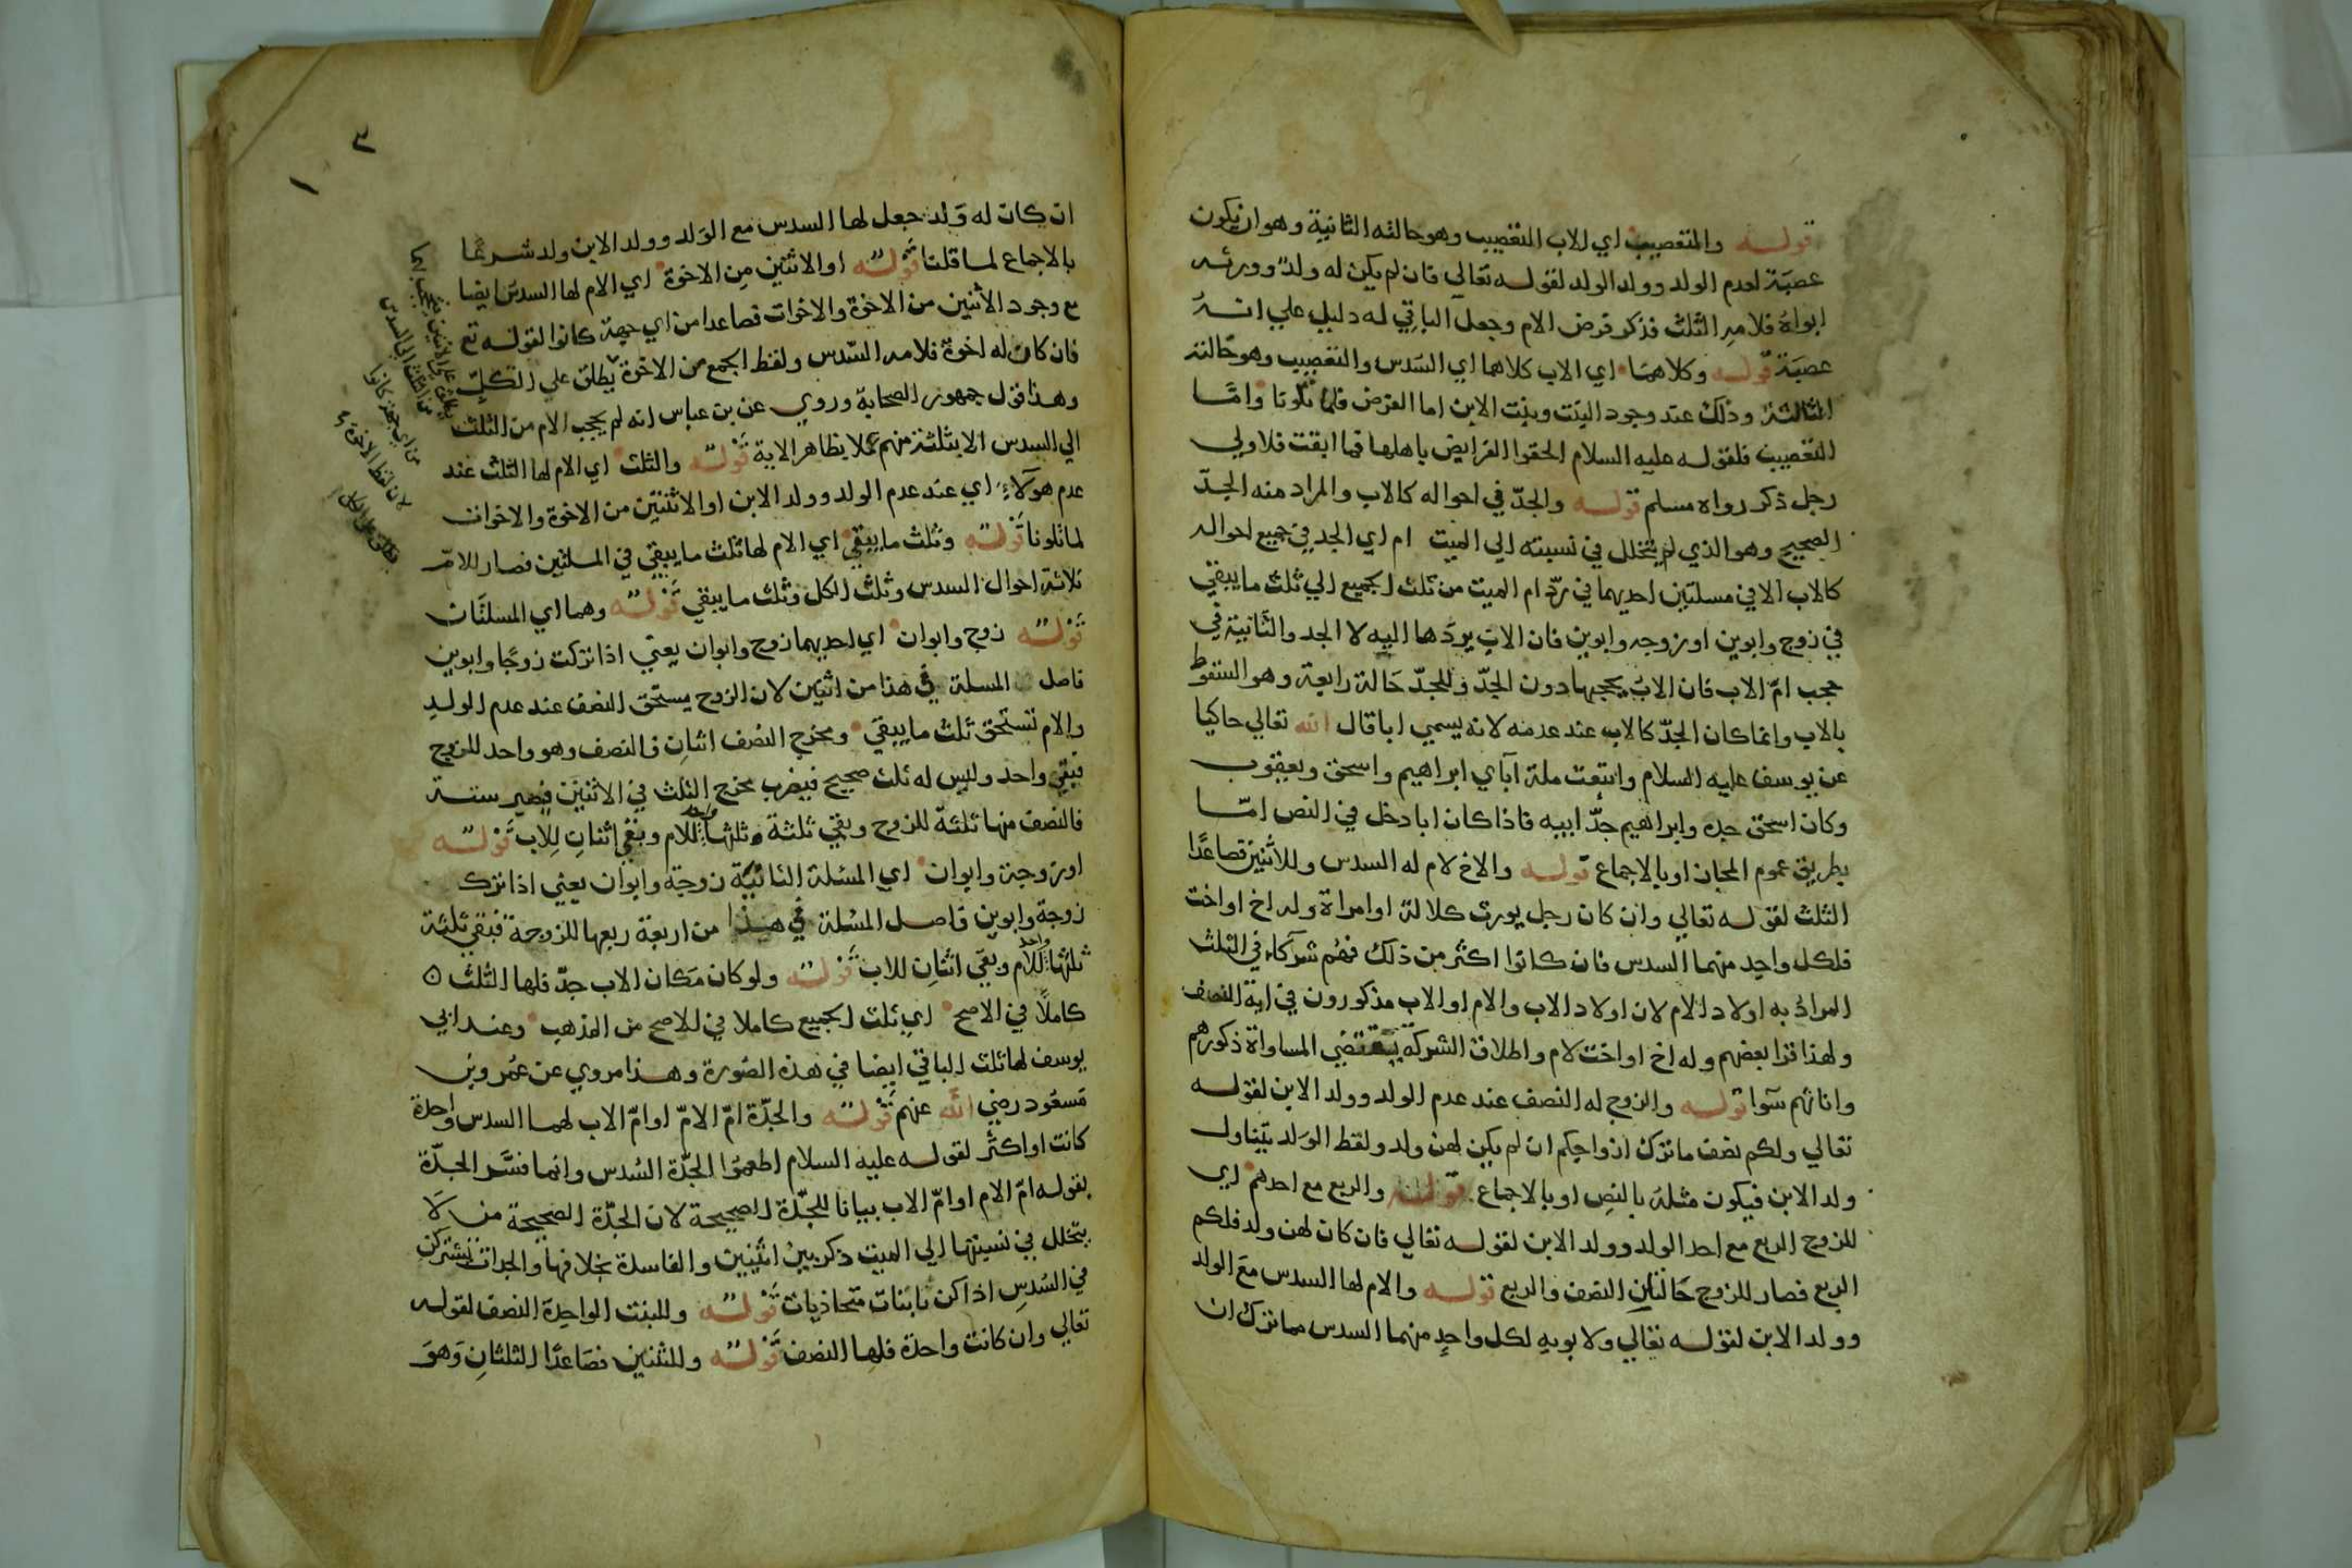 قوله والتعصيب اي للاب التعصيب وهو حالته الثانية وهو ان يكون
عصبة لعدم الولد وولد الولد لقوله تعالي فان لم يكن له ولد وورثه
ابواه فلامه الثلث فذكر فرض الام وجعل الباقي له دليل علي انه
عصبة قوله وكلاهما اي للاب كلاهما اي السدس والتعصيب وهو حالته
الثالثة وذلك عند وجود البنت وبنت الابن اما الفرض فلما تلونا واما
التعصيب فلقوله عليه السلام الحقوا الفرايض باهلها فما ابقت فلاولي
رجل ذكر رواه مسلم قوله والجد في احواله كالاب والمراد منه الجد
الصحيح وهو الذي لم يتخلل في نسبته الي الميت ام اي الجد في جميع احواله
كالاب الا في مسلتين احديهما في رد ام الميت من ثلث الجميع الي ثلث ما يبقي
في زوج وابوين او زوجه وابوين فان الاب يردها اليه لا الجد والثانية في
حجب ام الاب فان الاب يحجبها دون الجد وللجد حالة رابعة وهو السقوط
بالاب وانما كان الجد كالاب عند عدمه لانه يسمي ابا قال الله تعالي حاكيا
عن يوسف عليه السلام واتبعت ملة آبآي ابراهيم واسحق ويعقوب
وكان اسحق جده وابراهيم جد ابيه فاذا كان ابا دخل في النص اما
بطريق عموم المجاز او بالاجماع قوله والاخ لام له السدس وللاثنين فصاعدا
الثلث لقوله تعالي وان كان رجل يورث كلالة او امراة وله اخ او اخت
فلكل واحد منهما السدس فان كانوا اكثر من ذلك فهم شركاء في الثلث
المراد به اولاد الام لان اولاد الاب والام او الاب مذكورون في اية النصف
ولهذا قرا بعضهم وله اخ او اخت لام واطلاق الشركة يقتضي المساواة ذكورهم
واناثهم سوا قوله والزوج له النصف عند عدم الولد وولد الابن لقوله
تعالي ولكم نصف ما ترك ازواجكم ان لم يكن لهن ولد ولفظ الولد يتناول
ولد الابن فيكون مثله بالنص او بالاجماع قوله والربع مع احدهم اي
للزوج الربع مع احد الولد وولد الابن لقوله تعالي فان كان لهن ولد فلكم
الربع فصار للزوج حالتان النصف والربع قوله والام لها السدس مع الولد
وولد الابن لقوله تعالي ولابويه لكل واحد منهما السدس مما ترك ان
٢
١
ان كان له ولد جعل لها السدس مع الولد وولد الابن ولد شرعا
بالاجماع لما قلنا قوله او الاثنين من الاخوة اي الام لها السدس ايضا
مع وجود الاثنين من الاخوة والاخوات فصاعدا من اي جهة كانوا لقوله تع
فان كان له اخوة فلامه السدس ولفظ الجمع من الاخوة يطلق علي الكل
وهذا قول جمهور الصحابة وروي عن بن عباس انه لم يحجب الام من الثلث
الي السدس الا بثلثة منهم عملا بظاهر الاية قوله والثلث اي الام لها الثلث عند
عدم هولاء اي عند عدم الولد وولد الابن او الاثنين من الاخوة والاخوات
لما تلونا قوله وثلث ما يبقي اي الام لها ثلث ما يبقي في المسلتين فصار للام
ثلاثة احوال السدس وثلث الكل وثلث ما يبقي قوله وهما اي المسلتان
قوله زوج وابوان اي احديهما زوج وابوان يعني اذا تركت زوجا وابوين
فاصل المسلة في هذا من اثنين لان الزوج يستحق النصف عند عدم الولد
والام تستحق ثلث ما يبقي ومخرج النصف اثنان فالنصف وهو واحد للزوج
فبقي واحد وليس له ثلث صحيح فيضرب مخرج الثلث في الاثنين فيصير ستة
فالنصف منها ثلثة للزوج وبقي ثلثة وثلثها واحد للام وبقي اثنان للاب قوله
او زوجة وابوان اي المسئلة الثانية زوجة وابوان يعني اذا ترك
زوجة وابوين فاصل المسئلة في هذا من اربعة ربعها للزوجة فبقي ثلثة
ثلثها واحد للام وبقي اثنان للاب قوله ولو كان مكان الاب جد فلها الثلث
كاملا في الاصح اي ثلث الجميع كاملا في الاصح من المذهب وعند ابي
يوسف لها ثلث الباقي ايضا في هذه الصورة وهذا مروي عن عمر وبن
مسعود رضي الله عنهم قوله والجدة ام الام او ام الاب لهما السدس واحدة
كانت او اكثر لقوله عليه السلام اطعموا الجدة السدس وانما فسر الجدة
بقوله ام الام او ام الاب بيانا للجدة الصحيحة لان الجدة الصحيحة من لا
يتخلل في نسبتها الي الميت ذكر بين انثيين والفاسدة بخلافها والجدات يشتركن
في السدس اذا كن ثابتات متحاذيات قوله وللبنت الواحدة النصف لقوله
تعالي وان كانت واحدة فلها النصف قوله وللثنتين فصاعدا الثلثان وهو
من الثلث الي السدس
من اي جهة كانوا
لان لفظ الاخوة